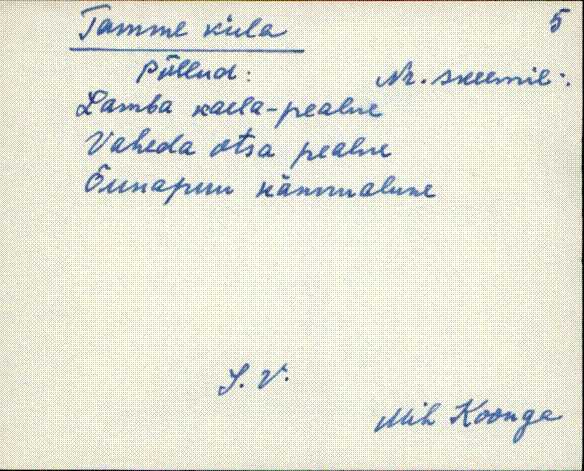 Tamme küla 5
Põllud: Nr. skeemil:.
Lamba kaela-pealne
Vaheda otsa pealne
Õunapuu kännualune
S. V.
Mih Koonga